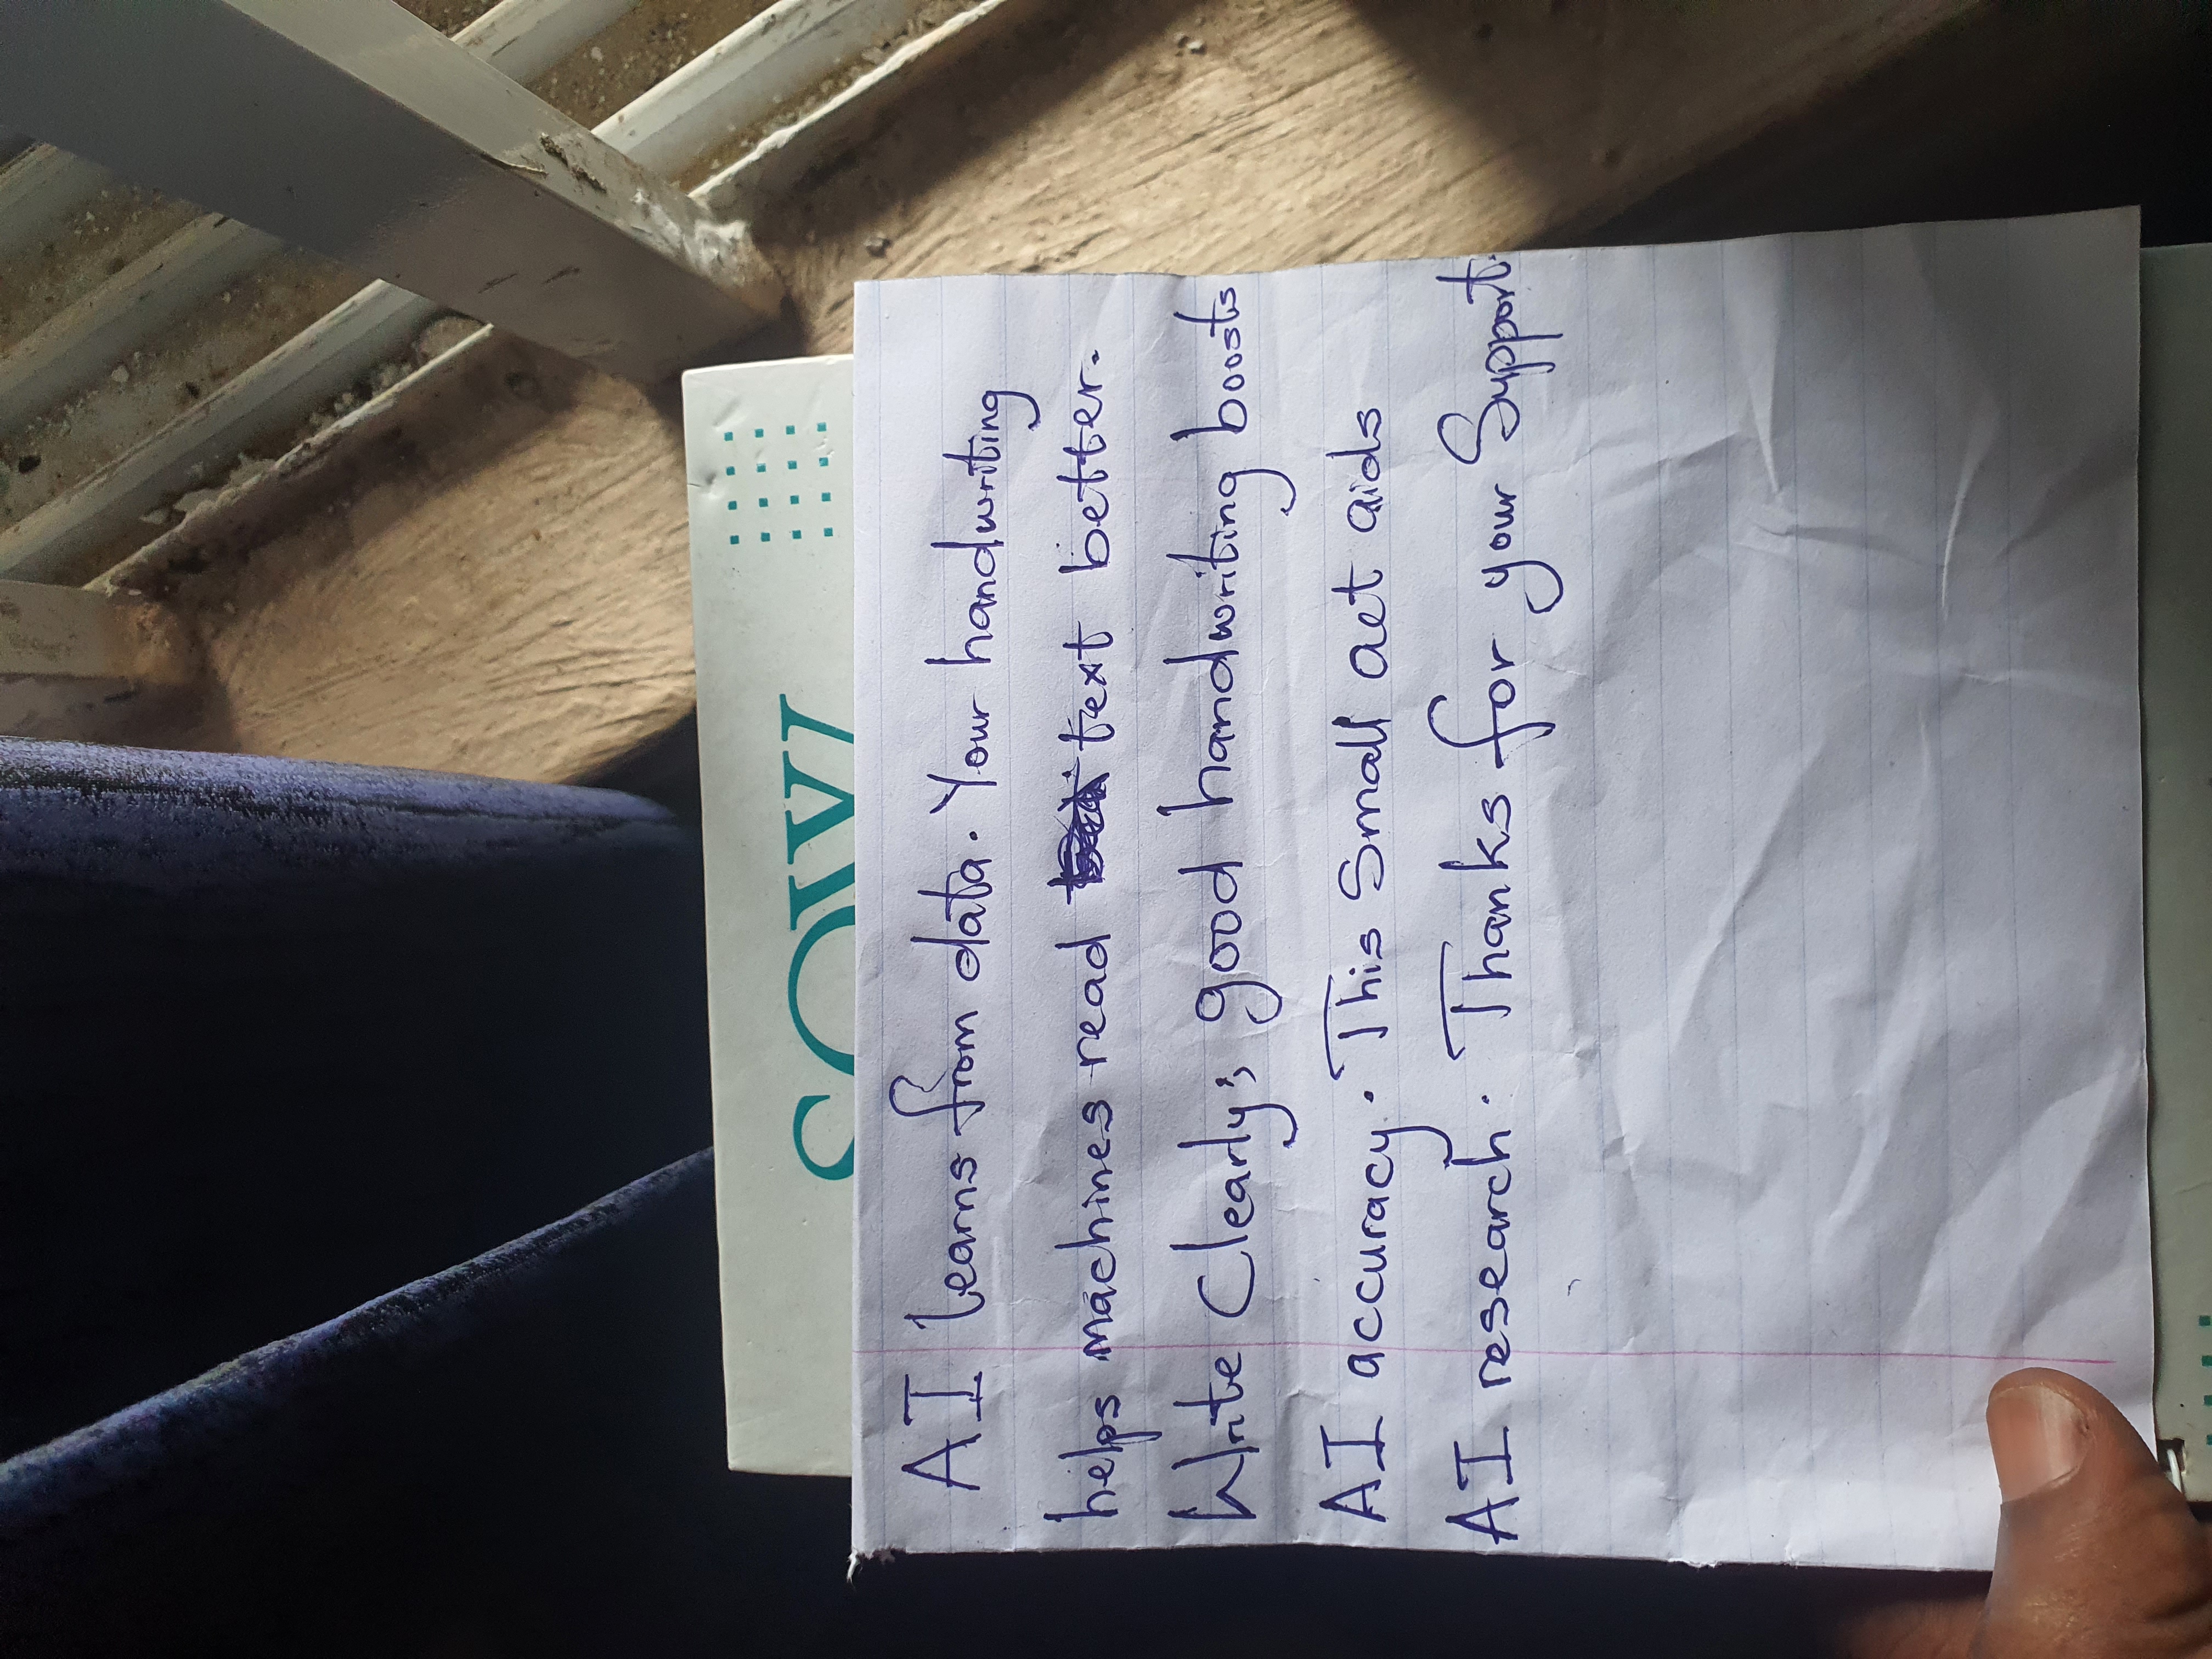 AI learns from data. Your handwriting
helps machines read text better.
Write Clearly; good handwriting boosts
AI accuracy. This Small act aids
AI research. Thanks for your Support.